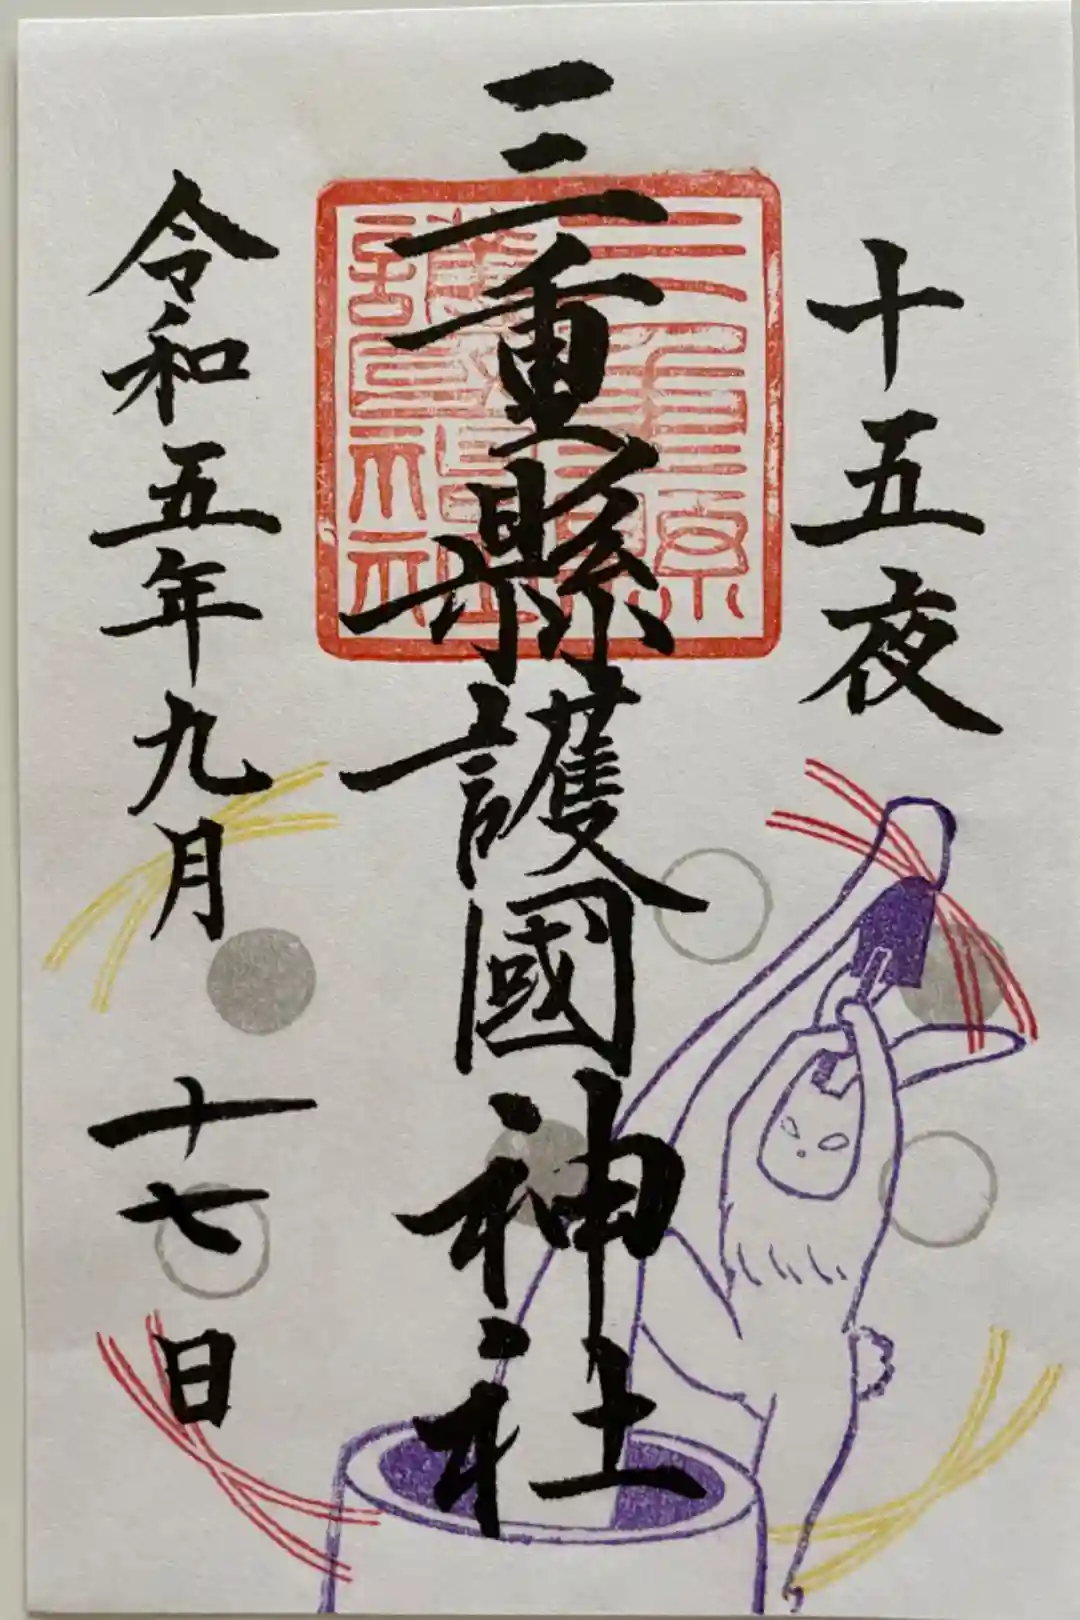 十五夜
三重縣護國神社
三重縣護國神社
令和五年九月十七日